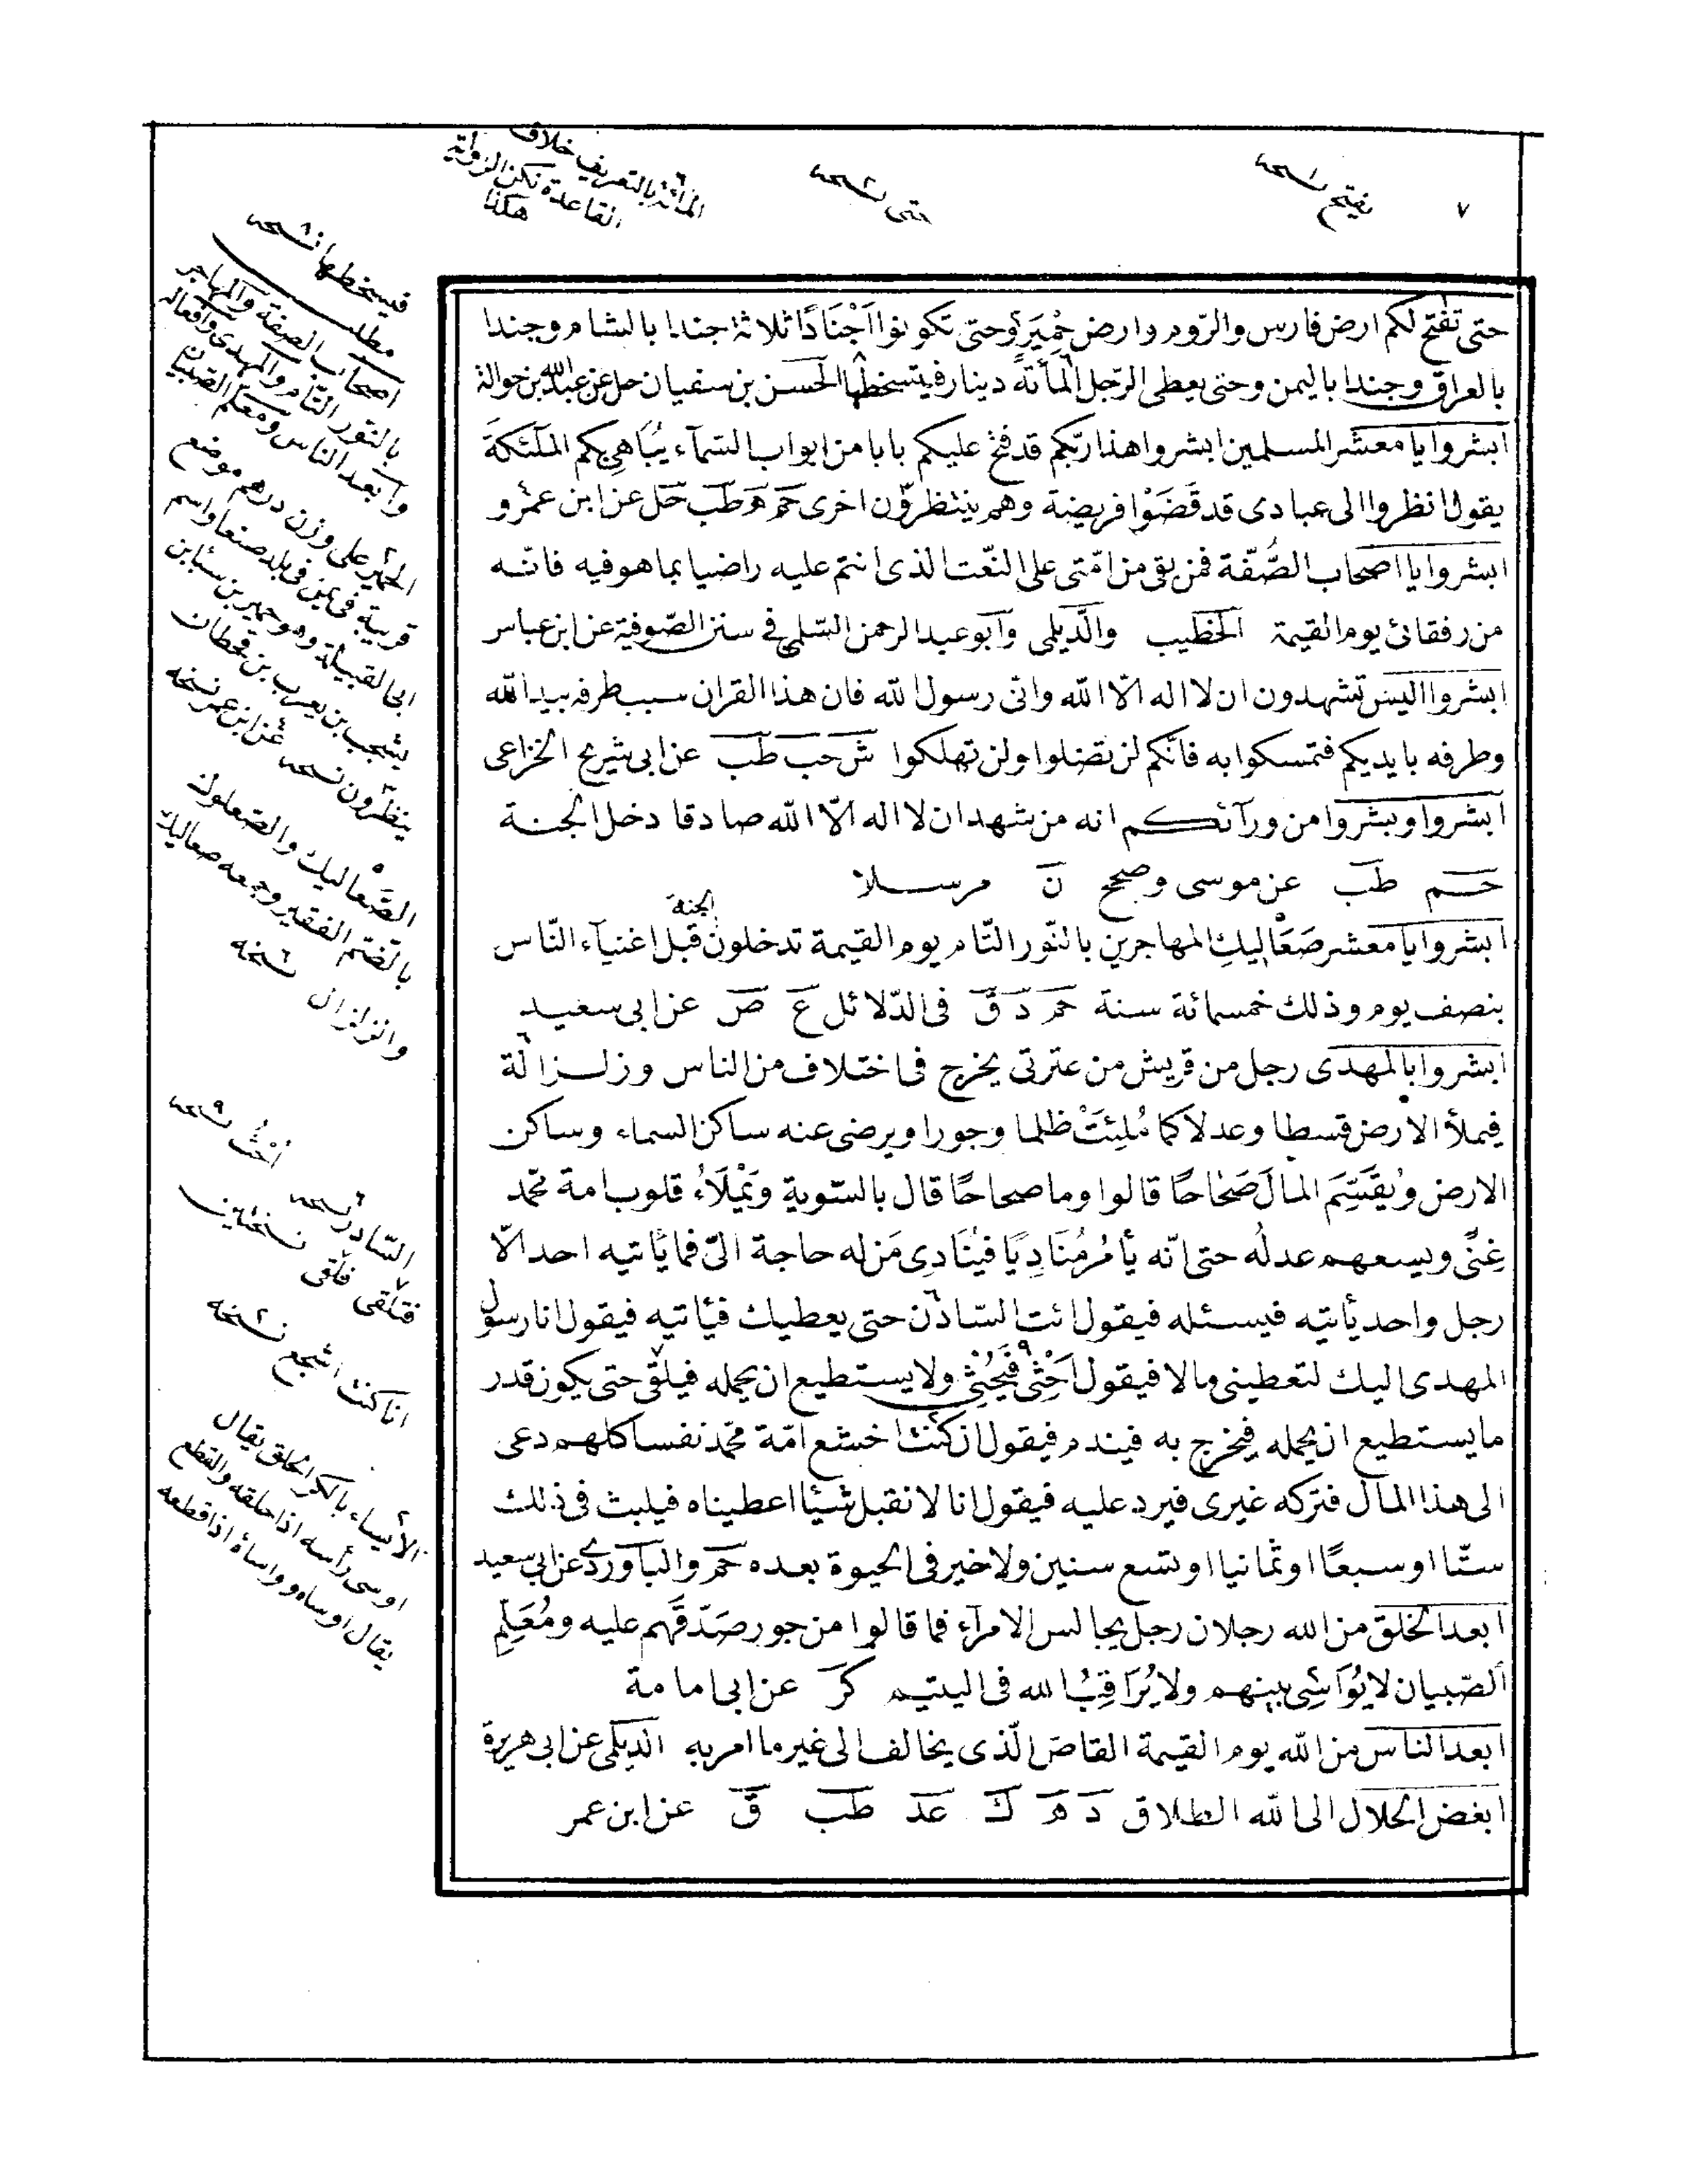 ٧
يفتح نسخه
حتى نسخه
المائة بالتعريف خلاف
القاعدة لكن الرواية
هكذا
حتى تفتح لكم ارض فارس والرّوم وارض حِمْيَر وحتى تكونوا اَجْنَادًا ثلاثة جندا بالشام وجندا
بالعراق وجندا باليمن وحتى يعطى الرّجل المأتة دينار فيتسخطها الحسن بن سفيان حل عن عبدالله بن حوالة
ابشروا يا معشر المسلمين ابشروا هذا ربّكم قد فتح عليكم بابا من ابواب السّمآء يُبَاهِى بكم الملٰئكةَ
يقول انظروا الى عبادى قد قَضَوْا فريضة وهم ينتظرون اخرى حم ه طب حل عن ابن عمرو
ابشروا يا اصحاب الصُّفّة فمن بقى من امّتى على النّعت الذى انتم عليه راضيا بما هو فيه فانّه
من رفقائى يوم القيمة الخطيب والدّيلمى وابو عبد الرحمن السّلمى فى سنن الصّوفية عن ابن عباس
ابشروا اليس تشهدون ان لا اله الّا الله وانّى رسول الله فان هذا القران سبب طرفه بيد الله
وطرفه بايديكم فتمسكوا به فانّكم لن تضلوا ولن تهلكوا ش حب طب عن ابى شريح الخزاعى
ابشروا وبشروا من ورآئكم انه من شهد ان لا اله الّا الله صادقا دخل الجنة
حم طب عن موسى وصحح ن مرسلا
ابشروا يا معشر صَعَاليكِ المهاجرين بالنّور التّام يوم القيمة تدخلون الجنة قبل اغنيآء النّاس
بنصف يوم وذلك خمسمائة سنة حم د ق فى الدّلائل ع ض عن ابى سعيد
ابشروا بالمهدى رجل من قريش من عترتى يخرج فى اختلاف من الناس وزلزالة
فيملأ الارض قسطا وعدلا كما مُلِئَتْ ظلما وجورا ويرضى عنه ساكن السماء وساكن
الارض ويُقَسِّم المالَ صَحَاحًا قالوا وما صحاحًا قال بالسّوية ويَمْلَاُ قلوب امة محمّد
غِنًى ويسعهم عدلُه حتى انّه يأمُرُ مُنَادِيًا فيُنَادِى مَن له حاجة الىّ فما يأتيه احد الّا
رجل واحد يأتيه فيسئله فيقول ائت السّادن حتى يعطيك فيأتيه فيقول انا رسول
المهدى اليك لتعطينى مالا فيقول اَحْثِى فيحثى ولا يستطيع ان يحمله فيلقى حتى يكون قدر
ما يستطيع ان يحمله فيخرج به فيندم فيقول ان كنت اخشع امّة محمّد نفسا كلهم دعى
الى هذا المال فتركه غيرى فيرد عليه فيقول انا لا نقبل شيئا اعطيناه فيلبث فى ذلك
ستّا او سبعًا او ثمانيا او تسع سنين ولا خير فى الحيوة بعده حم والباوردى عن ابى سعيد
ابعد الخلق من الله رجلان رجل يجالس الامرآء فما قالوا من جور صَدّقهم عليه ومُعَلِّم
الصّبيان لا يُوَاسِى بينهم ولا يُرَاقِبُ الله فى اليتيم كر عن ابى امامة
ابعد الناس من الله يوم القيمة القاصّ الّذى يخالف الى غير ما امر به الديلمى عن ابى هريرة
ابغض الحلال الى الله الطلاق د ه ك عد طب ق عن ابن عمر
فيسخطها نسخه
مطلب
اصحاب الصفة والمهاجر
بالنّور التّام والمهدى وافعاله
وابعد الناس ومعلم الصّبيان
الحمير على وزن درهم موضع
قريبة فى يمن فى بلد صنعا واسم
ابى القبيلة وهو حمير بن سبا بن
يشجب بن يعرب بن قحطان
ينظرون نسخه عن ابن عمر نسخه
الصّعاليك والصّعلوك
بالضّم الفقير وجمعه صعاليك
والزلزال نسخه
اُحْثُ نسخه
السّادر نسخه
فتلقى فلقى نسختين
انا كنت اشجع نسخه
الأيساء بالكسر الحلق يقال
اوسى رأسه اذا حلقه والقطع
يقال اوساه وواساه اذا قطعه